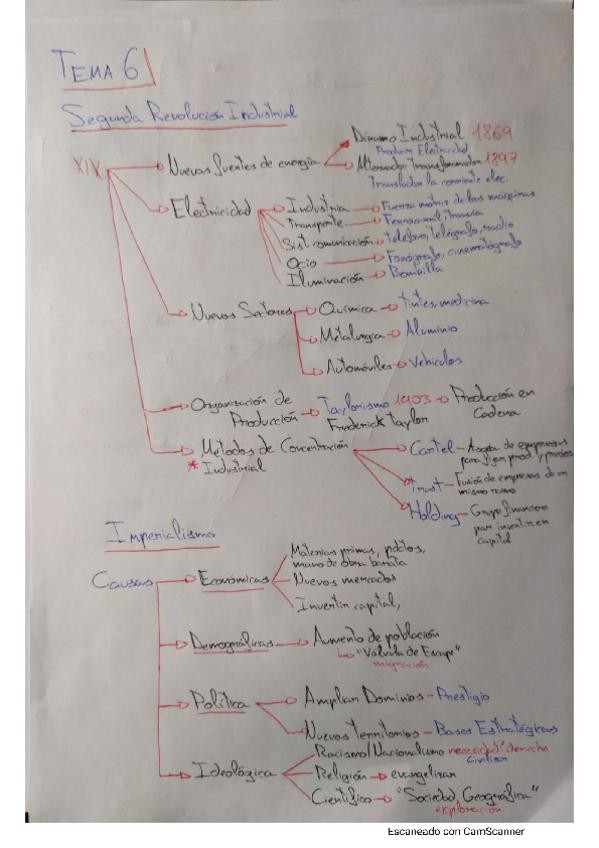 TEMA 6
Segunda Revolución Industrial
XIX
Nuevas fuentes de energía
Dinamo Industrial 1869
Producir Electricidad
Alternador transformador 1897
Trasladar la corriente elec.
Electricidad
Industria Fuerza motriz de las máquinas
Transporte Ferrocarril, tranvía
Sist. comunicación teléfono, telégrafo, radio
Ocio Fonógrafo, cinematógrafo
Iluminación Bombilla
Nuevos Sectores Química tintes, medicina
Metalurgia Aluminio
Automóviles Vehículos
Organización de
Producción Taylorismo 1903 Producción en
Frederick Taylor Cadena
Métodos de Concentración
* Industrial
Cartel - de empresas
para fijar prod. y precios
Trust - Fusión de empresas de un
mismo ramo
Holding - Grupo financiero
para invertir en
capital
Imperialismo
Causas
Económicas
Materias primas, pdctos,
mano de obra barata
Nuevos mercados
Invertir capital,
Demográficas Aumento de población
"Válvula de Escape"
migración
Política Ampliar Dominios - Prestigio
Nuevos territorios - Bases Estratégicas
Ideológica
Racismo/Nacionalismo necesidad derecho
civilizar
Religión evangelizar
Científico "Sociedad Geográfica"
exploración
Escaneado con CamScanner